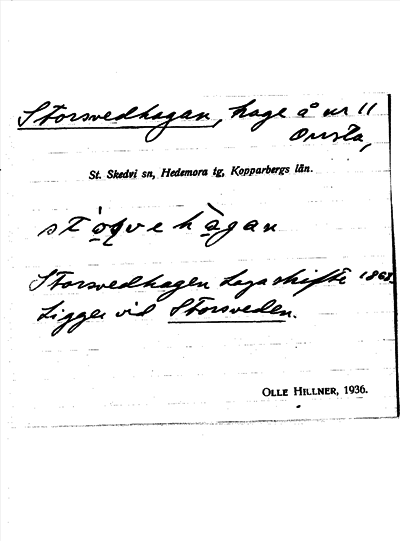 Storsvedhagan, hage å nr 11
Onsta,
St. Skedvi sn, Hedemora tg, Kopparbergs län.
Storsvedhagen Laga skifte 1868.
Ligger vid Storsveden.
OLLE HILLNER, 1936.